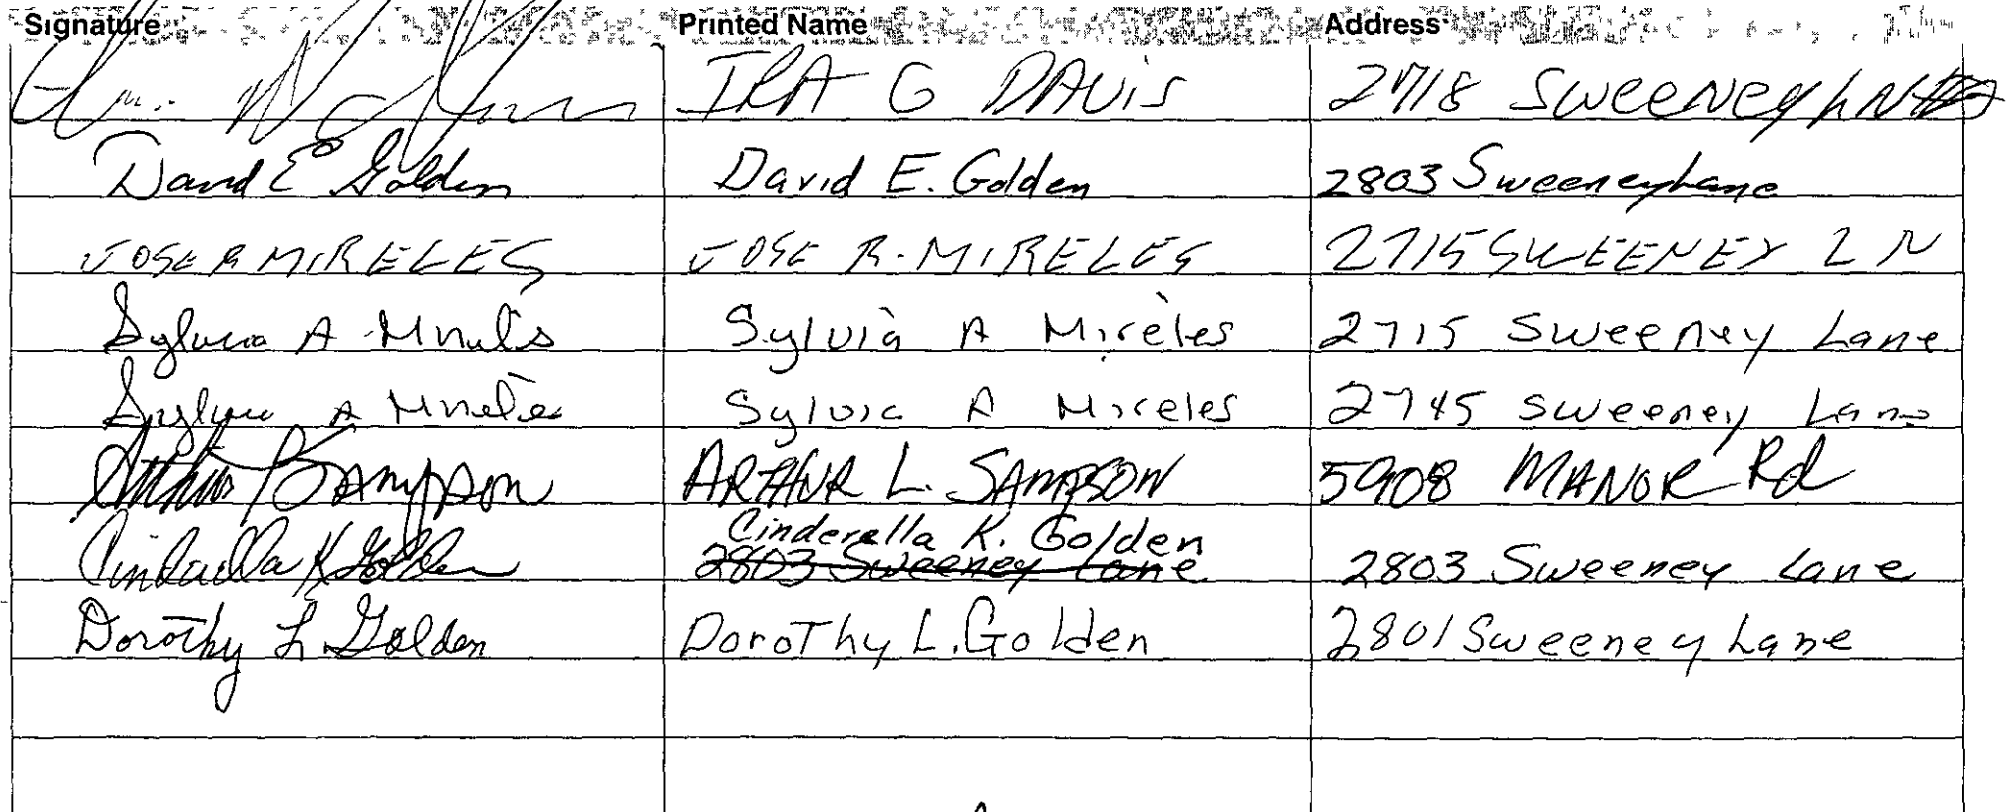 Signature Printed Name Address
IRA G DAVIS 2718 SWEENEY LN
David E Golden David E. Golden 2803 Sweeney Lane
JOSE R MIRELES JOSE R. MIRELES 2715 SWEENEY LN
Sylvia A Mireles Sylvia A Mireles 2715 Sweeney Lane
Sylvia A Mireles Sylvia A Mireles 2745 Sweeney Lane
Arthur Sampson ARTHUR L. SAMPSON 5908 MANOR Rd
Cinderella K Golden Cinderella K. Golden 2803 Sweeney Lane
2803 Sweeney Lane
Dorothy L Golden DoroThy L. Golden 2801 Sweeney Lane